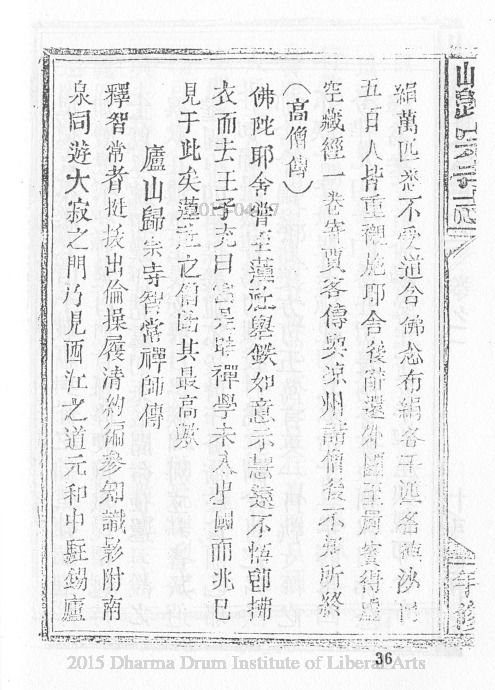 絹萬匹悉不受道含佛念布絹各千匹客諸沙門
五百人皆重禮施耶舍後辭還外國至罽賓得虛
空藏經一卷寄賈客傳與涼州諸僧後不知所終
(高僧傳)
佛陀耶舍嘗至蓮社舉鐵如意示慧遠不悟即拂
衣而去王子充曰當是時禪學未入中國而兆已
見于此矣蓮社之僧此其最高歟
廬山歸宗寺智常禪師傳
釋智常者挺拔出倫操履清約徧參知識影附南
泉同遊大寂之門乃見西江之道元和中駐錫廬
36
2015 Dharma Drum Institute of Liberal Arts